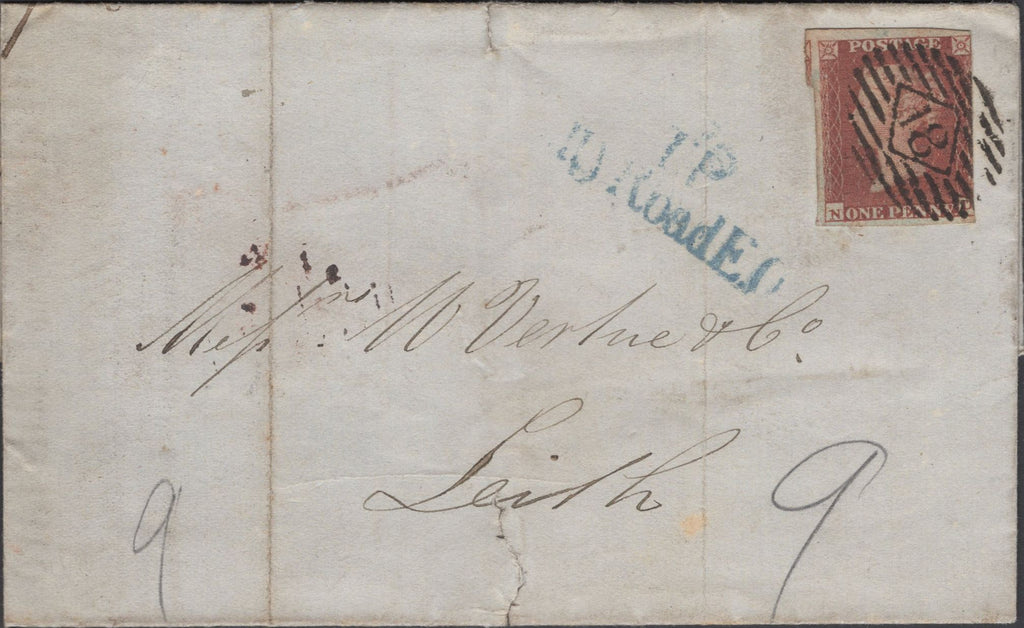 POSTAGE
18
N ONE PENNY
T.P
Road E.O
Messrs W Vertue & Co.
Leith
9
9